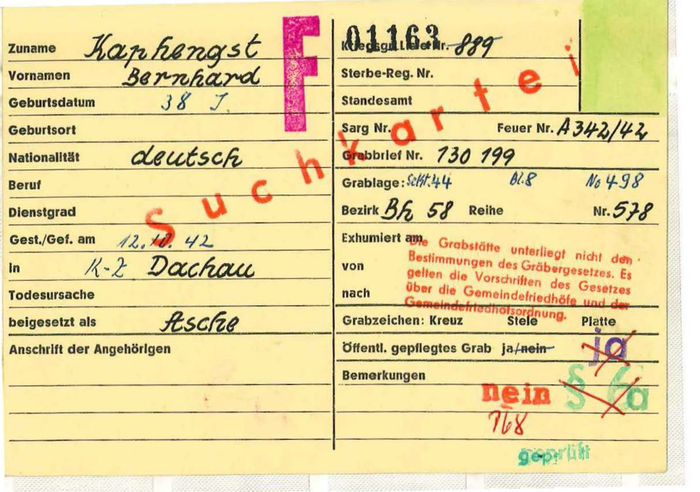 Zuname Kaphengst
Vornamen Bernhard
Geburtsdatum 38 J.
Geburtsort
Nationalität deutsch
Beruf
Dienstgrad
Gest./Gef. am 12.10.42
in K-Z Dachau
Todesursache
beigesetzt als Asche
Anschrift der Angehörigen
F
Suchkartei
01163
Kriegsgr. Liste Nr. 889
Sterbe-Reg. Nr.
Standesamt
Sarg Nr. Feuer Nr. A 342/42
Grabbrief Nr. 130 199
Grablage: Sekt. 44 Bl. 8 No 498
Bezirk Bh 58 Reihe Nr. 578
Exhumiert am
von
nach
Die Grabstätte unterliegt nicht den
Bestimmungen des Gräbergesetzes. Es
gelten die Vorschriften des Gesetzes
über die Gemeindefriedhöfe und der
Gemeindefriedhofsordnung.
Grabzeichen: Kreuz Stele Platte
Öffentl. gepflegtes Grab ja/nein ja
Bemerkungen
nein § 6a
768
geprüft